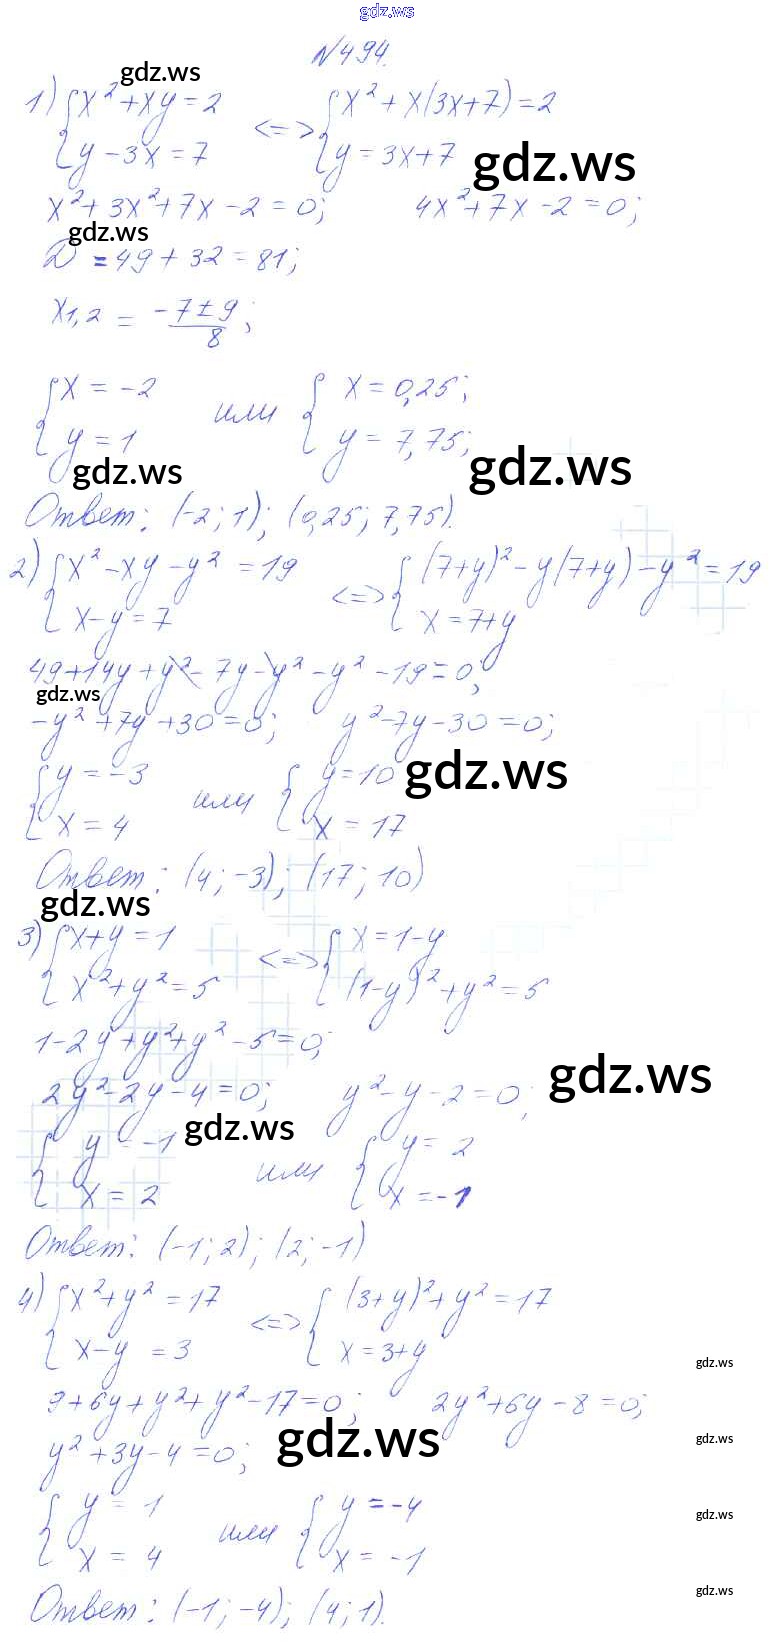 gdz.ws
N494.
gdz.ws
1) { x² + xy = 2 <=> { x² + x(3x+7) = 2
y - 3x = 7 y = 3x+7 gdz.ws
x² + 3x² + 7x - 2 = 0; 4x² + 7x - 2 = 0;
gdz.ws
D = 49 + 32 = 81;
x1,2 = -7±9 / 8;
{ x = -2 или { x = 0,25;
y = 1 y = 7,75;
gdz.ws gdz.ws
Ответ: (-2; 1); (0,25; 7,75).
2) { x² - xy - y² = 19 <=> { (7+y)² - y(7+y) - y² = 19
x - y = 7 x = 7+y
49 + 14y + y² - 7y - y² - y² - 19 = 0;
gdz.ws
-y² + 7y + 30 = 0; y² - 7y - 30 = 0;
{ y = -3 или { y = 10 gdz.ws
x = 4 x = 17
Ответ: (4; -3); (17; 10)
gdz.ws
3) { x + y = 1 <=> { x = 1 - y
x² + y² = 5 (1-y)² + y² = 5
1 - 2y + y² + y² - 5 = 0;
2y² - 2y - 4 = 0; y² - y - 2 = 0; gdz.ws
{ y = -1 gdz.ws или { y = 2
x = 2 x = -1
Ответ: (-1; 2); (2; -1)
4) { x² + y² = 17 <=> { (3+y)² + y² = 17
x - y = 3 x = 3+y
gdz.ws
9 + 6y + y² + y² - 17 = 0; 2y² + 6y - 8 = 0;
gdz.ws
y² + 3y - 4 = 0; gdz.ws
{ y = 1 или { y = -4
gdz.ws
x = 4 x = -1
gdz.ws
Ответ: (-1; -4); (4; 1).